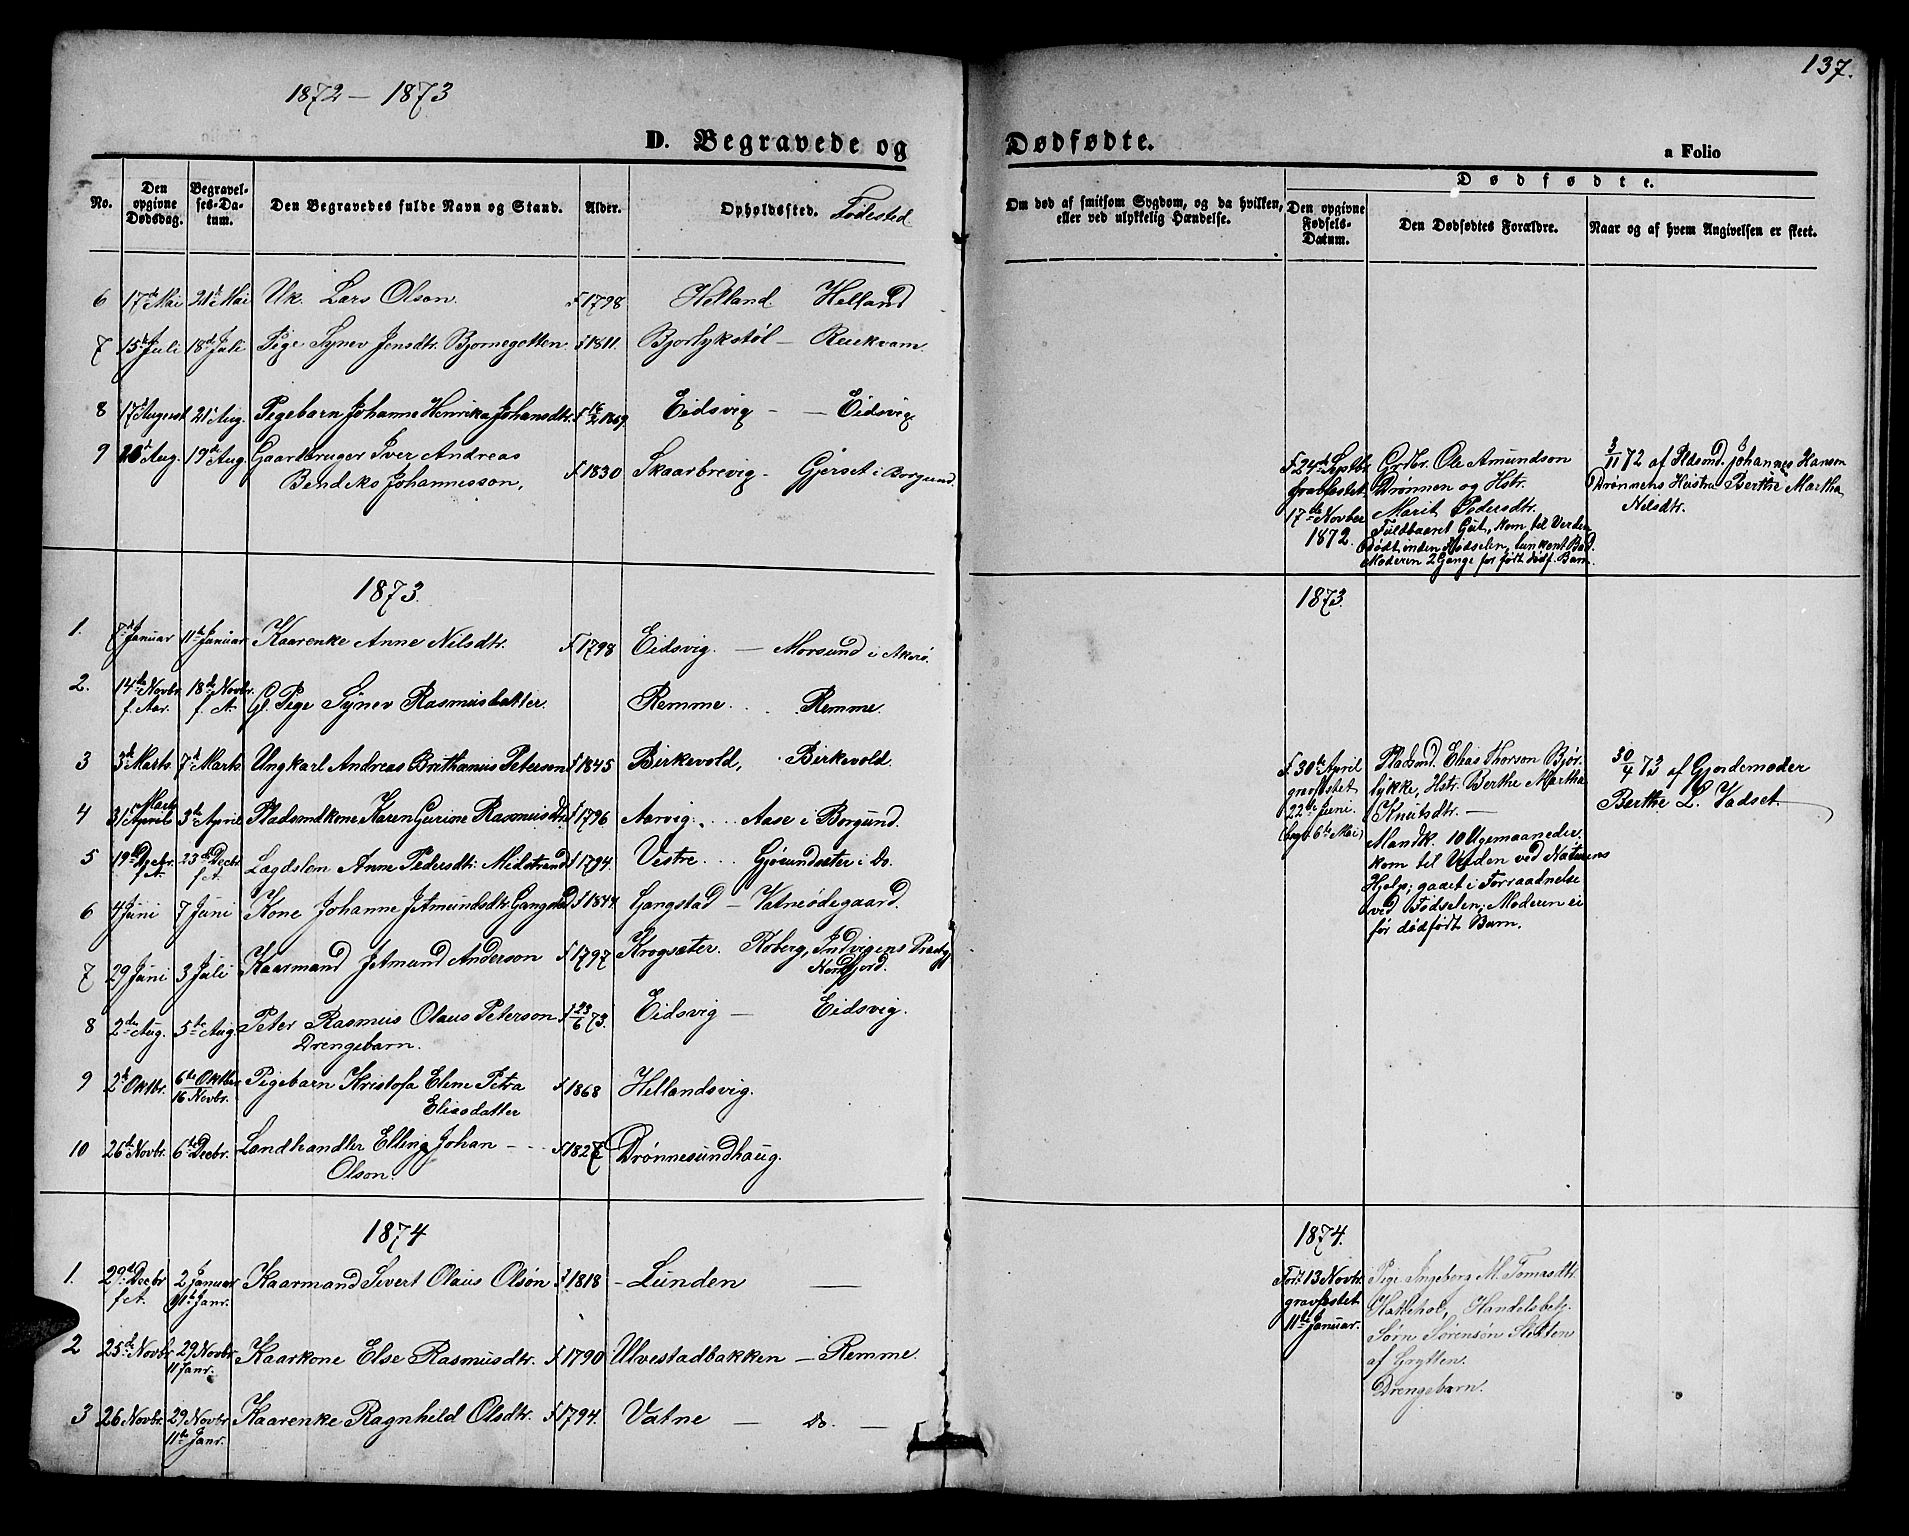 1872 – 1873
137.
D. Begravede og Dødfødte.
a Folio
No.
Den opgivne Dødsdag.
Begravelses-Datum.
Den Begravedes fulde Navn og Stand.
Alder.
Opholdssted. Fødested
Om død af smitsom Sygdom, og da hvilken, eller ved ulykkelig Hændelse.
Dødfødte.
Den opgivne Fødsels-Datum.
Den Dødfødtes Forældre.
Naar og af hvem Angivelsen er skeet.
6 17de Mai 21de Mai Uk. Lars Olson. f. 1798 Helland Helland
7 15de Juli 18de Juli Pige Synev Jensdtr. Bjørnegotten. f. 1811. Bjorlykstøl – Reukvam.
8 17de August 21de Aug. Pigebarn Johanne Henrika Johansdtr. Eidsvig – – Eidsvig
9 Aug. 19de Aug. Gaardbruger Iver Andreas
Bendeks Johannesson, f. 1830 Skaarbrevig – Gjerset i Borgund.
F. 24de Septbr.
gravfæstet
17de Novber
1872.
Grdbr. Ole Amundson
Drønnen og Hstr.
Marit Pedersdtr.
Fuldbaaret Gut, kom til Verden
Dødt inden Fødselen, lunkent Bad.
Moderen 2 Gange før født dødf. Barn.
3/11 72 af Pldsmd. Johannes Hansen
Drønnens Hustru Berthe Martha
Nilsdtr.
1873.
1873.
1. 7de Januar 11te Januar Kaarenke Anne Nilsdtr. f. 1798 Eidsvig. – Morsund i Akerø.
2. 14de Novbr. f. Aar. 18de Novbr. f. A. Gl. Pige Synev Rasmusdatter. Remme. . . Remme.
3 3de Marts. 7de Marts Ungkarl Andreas Brithanus Peterson f. 1845 Birkevold, Birkevold.
4 31 Marts April 3de April Pladsmdkone Karen Gurine Rasmusdtr. f. 1796 Aarvig. . . . Aase i Borgund.
5 19de Decbr. f. A. 23de Decbr. f. A. Lægdslem Anne Pedersdtr. Midstrand f. 1794. Vestre. . . . Gjøsundsæter i Do.
6 4 Juni 7 Juni Kone Johanne Jetmundsdtr. Gangstad f. 1844. Gangstad – Vatneødegaard.
7 29 Juni 3 Juli Kaarmand Jetmund Anderson f. 1797 Krogsæter. Roberg, Indvigens Præstgj.
Nordfjord.
8 2den Aug. 5te Aug. Peter Rasmus Olaus Peterson f. 23/6 73. Eidsvig – Eidsvig.
Drengebarn.
9 2de Oktbr. 6te Oktber 16 Novbr. Pigebarn Kristofa Eline Petra f. 1868 Hellandsvig.
Eliasdatter
10 26de Novbr. 6te Decbr. Landhandler Elling Johan – – f. 1827 Drønnesundhaug.
Olson.
F. 30te April
gravfæstet
22de Juni.
(begr. 6te Mai)
Pladsmd. Elias Thorson Bjør-
lykke, Hstr. Berthe Martha
Knutsdtr. –
Mandk. 10 Ugemaaneder
kom til Verden ved Naturens
Hjælp; gaaet i Forraadnelse
ved Fødselen; Moderen ei
før dødfødt Barn.
30/4 73 af Gjordemoder
Berthe L. Vadset
1874
1874.
1. 29de Decbr f. A. 2 Januar 11te Janr. Kaarmand Sivert Olaus Olsøn f. 1818 – Lunden –
2 25de Novbr 29 Novbr. 11 Janr. Kaarkone Else Rasmusdtr. f. 1790 Ulvestadbakken – Remme.
3 26 Novbr. 29 Novbr. 11te Janr. Kaarenke Ragnhild Olsdtr. f. 1794. Vatne – Do. –
Før. 13 Novbr.
gravfæstet
11te Januar.
Pige Ingeborg M. Tomasdtr.
Hattehol, Handelsbetj.
Sørn Sørensøn
af Grytten.
Drengebarn.